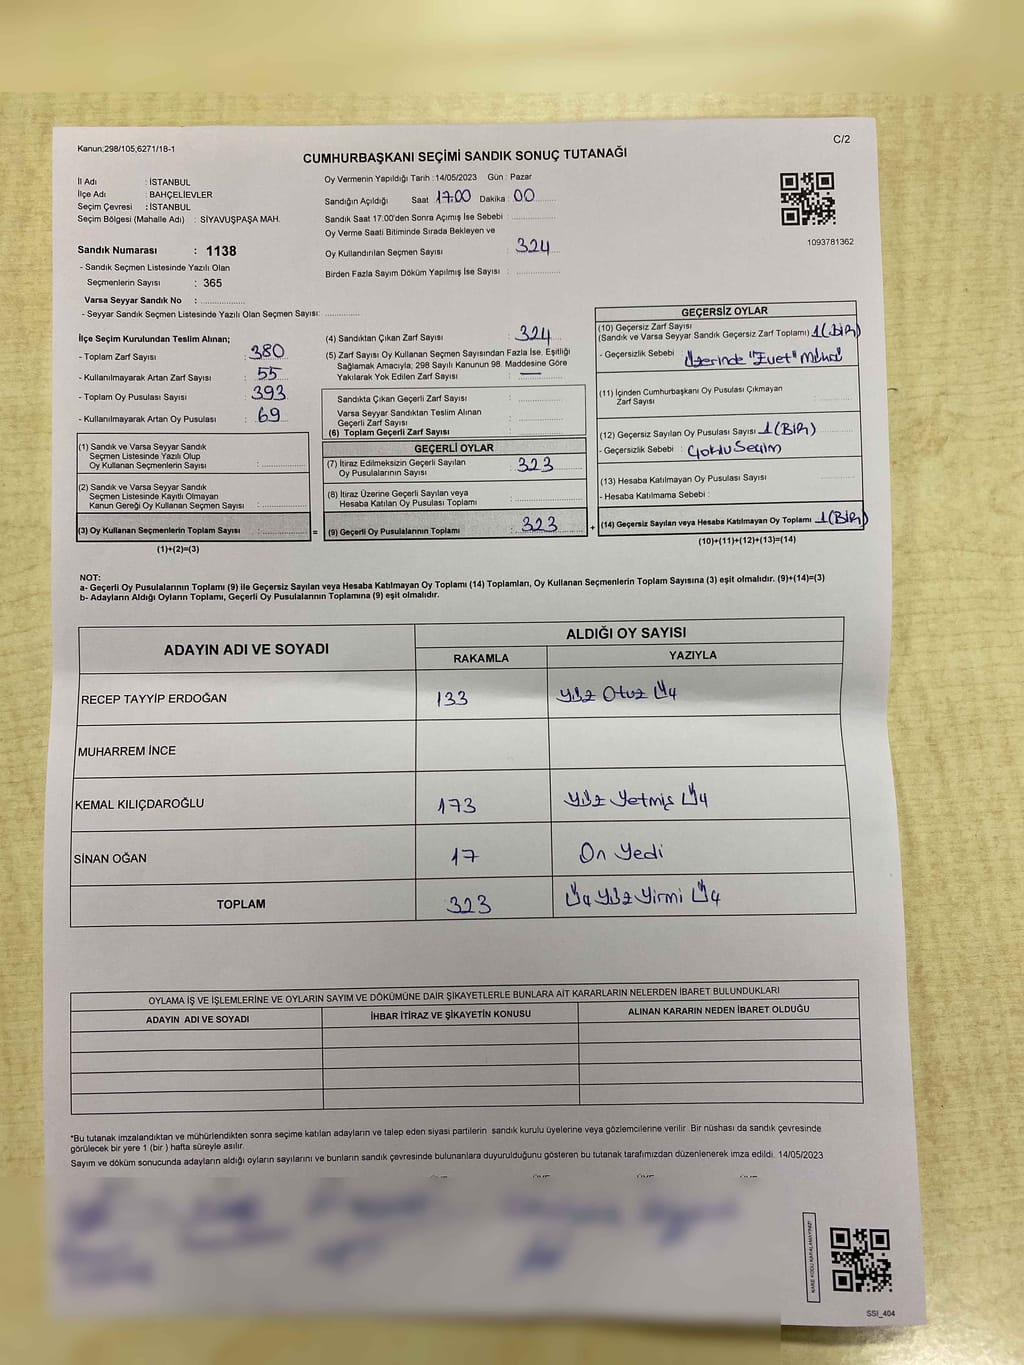 Kanun:298/105,6271/18-1
C/2
CUMHURBAŞKANI SEÇİMİ SANDIK SONUÇ TUTANAĞI
İl Adı : İSTANBUL
İlçe Adı : BAHÇELİEVLER
Seçim Çevresi : İSTANBUL
Seçim Bölgesi (Mahalle Adı) : SİYAVUŞPAŞA MAH.
Sandık Numarası : 1138
- Sandık Seçmen Listesinde Yazılı Olan
Seçmenlerin Sayısı : 365
Varsa Seyyar Sandık No :
- Seyyar Sandık Seçmen Listesinde Yazılı Olan Seçmen Sayısı:
Oy Vermenin Yapıldığı Tarih : 14/05/2023 Gün : Pazar
Sandığın Açıldığı Saat 17:00 Dakika : 00
Sandık Saat 17:00'den Sonra Açımış İse Sebebi :
Oy Verme Saati Bitiminde Sırada Bekleyen ve
Oy Kullandırılan Seçmen Sayısı : 324
Birden Fazla Sayım Döküm Yapılmış İse Sayısı :
1093781362
İlçe Seçim Kurulundan Teslim Alınan;
- Toplam Zarf Sayısı : 380
- Kullanılmayarak Artan Zarf Sayısı : 55
- Toplam Oy Pusulası Sayısı : 393
- Kullanılmayarak Artan Oy Pusulası : 69
(1) Sandık ve Varsa Seyyar Sandık
Seçmen Listesinde Yazılı Olup
Oy Kullanan Seçmenlerin Sayısı :
(2) Sandık ve Varsa Seyyar Sandık
Seçmen Listesinde Kayıtlı Olmayan
Kanun Gereği Oy Kullanan Seçmen Sayısı :
(3) Oy Kullanan Seçmenlerin Toplam Sayısı :
(1)+(2)=(3)
(4) Sandıktan Çıkan Zarf Sayısı : 324
(5) Zarf Sayısı Oy Kullanan Seçmen Sayısından Fazla İse, Eşitliği
Sağlamak Amacıyla; 298 Sayılı Kanunun 98. Maddesine Göre
Yakılarak Yok Edilen Zarf Sayısı : —
Sandıkta Çıkan Geçerli Zarf Sayısı :
Varsa Seyyar Sandıktan Teslim Alınan
Geçerli Zarf Sayısı :
(6) Toplam Geçerli Zarf Sayısı
GEÇERLİ OYLAR
(7) İtiraz Edilmeksizin Geçerli Sayılan
Oy Pusulalarının Sayısı : 323
(8) İtiraz Üzerine Geçerli Sayılan veya
Hesaba Katılan Oy Pusulası Toplamı :
= (9) Geçerli Oy Pusulalarının Toplamı : 323 +
GEÇERSİZ OYLAR
(10) Geçersiz Zarf Sayısı
(Sandık ve Varsa Seyyar Sandık Geçersiz Zarf Toplamı) 1(BİR)
- Geçersizlik Sebebi : Üzerinde "Evet" Mührü
(11) İçinden Cumhurbaşkanı Oy Pusulası Çıkmayan
Zarf Sayısı
(12) Geçersiz Sayılan Oy Pusulası Sayısı 1(BİR)
- Geçersizlik Sebebi : Çoklu Seçim
(13) Hesaba Katılmayan Oy Pusulası Sayısı
- Hesaba Katılmama Sebebi :
(14) Geçersiz Sayılan veya Hesaba Katılmayan Oy Toplamı 1(BİR)
(10)+(11)+(12)+(13)=(14)
NOT:
a- Geçerli Oy Pusulalarının Toplamı (9) ile Geçersiz Sayılan veya Hesaba Katılmayan Oy Toplamı (14) Toplamları, Oy Kullanan Seçmenlerin Toplam Sayısına (3) eşit olmalıdır. (9)+(14)=(3)
b- Adayların Aldığı Oyların Toplamı, Geçerli Oy Pusulalarının Toplamına (9) eşit olmalıdır.
ADAYIN ADI VE SOYADI
ALDIĞI OY SAYISI
RAKAMLA YAZIYLA
RECEP TAYYİP ERDOĞAN 133 Yüz Otuz Üç
MUHARREM İNCE
KEMAL KILIÇDAROĞLU 173 Yüz Yetmiş Üç
SİNAN OĞAN 17 On Yedi
TOPLAM 323 Üç Yüz Yirmi Üç
OYLAMA İŞ VE İŞLEMLERİNE VE OYLARIN SAYIM VE DÖKÜMÜNE DAİR ŞİKAYETLERLE BUNLARA AİT KARARLARIN NELERDEN İBARET BULUNDUKLARI
ADAYIN ADI VE SOYADI İHBAR İTİRAZ VE ŞİKAYETİN KONUSU ALINAN KARARIN NEDEN İBARET OLDUĞU
*Bu tutanak imzalandıktan ve mühürlendikten sonra seçime katılan adayların ve talep eden siyasi partilerin sandık kurulu üyelerine veya gözlemcilerine verilir. Bir nüshası da sandık çevresinde
görülecek bir yere 1 (bir) hafta süreyle asılır.
Sayım ve döküm sonucunda adayların aldığı oyların sayılarını ve bunların sandık çevresinde bulunanlara duyurulduğunu gösteren bu tutanak tarafımızdan düzenlenerek imza edildi. 14/05/2023
KARE KODU KARALAMAYINIZ!
SSI_404